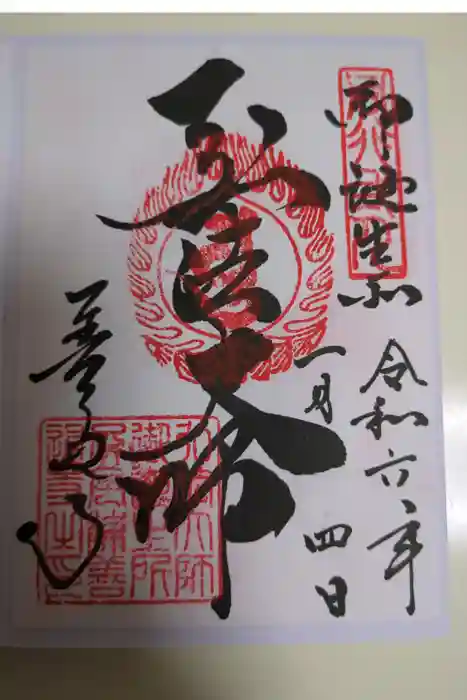 御誕生所
令和六年
一月四日
弘法大師
善通寺
弘法大師
御誕生所